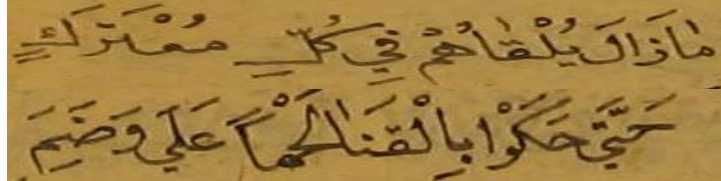 مَاذَالَ يُلْقَاهُمُ فِي كُلِّ مُعْتَرَكٍ
حَتَّي حَكَوْا بِالْقَنَا لَحْماً عَلَي وَضَمِ